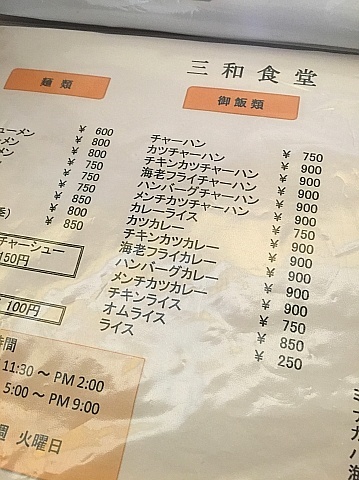 三和食堂
麺類
ューメン ¥ 600
メン ¥ 800
メン ¥ 800
¥ 750
¥ 750
¥ 750
¥ 850
¥ 800
¥ 850
チャーシュー
150円
100円
時間
11:30 ～ PM 2:00
5:00 ～ PM 9:00
週 火曜日
御飯類
チャーハン ¥ 750
カツチャーハン ¥ 900
チキンカツチャーハン ¥ 900
海老フライチャーハン ¥ 900
ハンバーグチャーハン ¥ 900
メンチカツチャーハン ¥ 900
カレーライス ¥ 750
カツカレー ¥ 900
チキンカツカレー ¥ 900
海老フライカレー ¥ 900
ハンバーグカレー ¥ 900
メンチカツカレー ¥ 900
チキンライス ¥ 750
オムライス ¥ 850
ライス ¥ 250